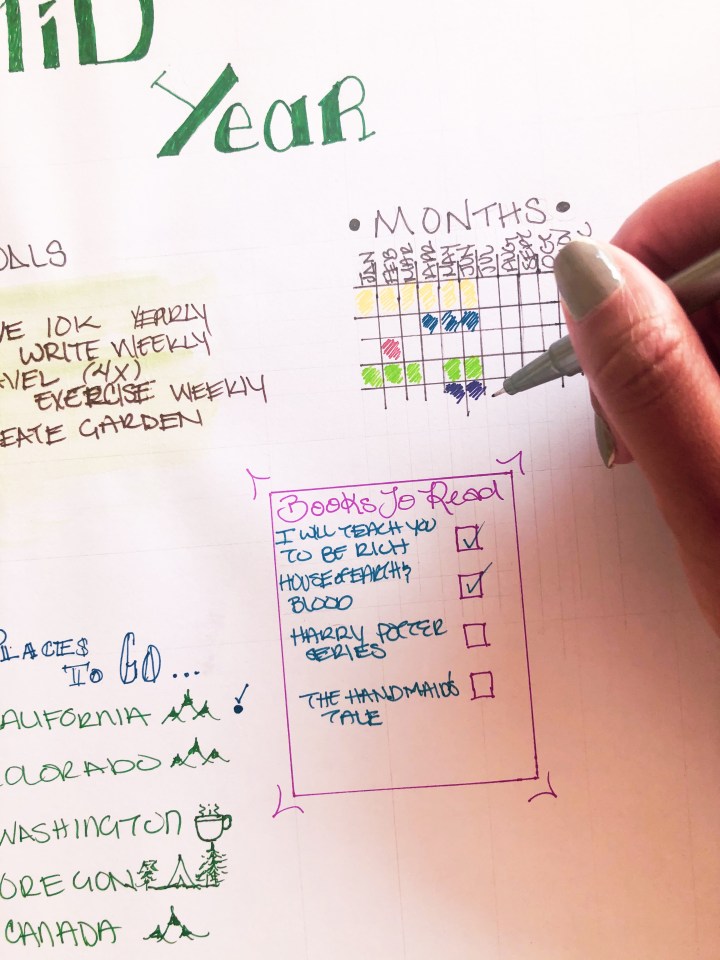 MID
Year
• MONTHS •
JAN FEB MAR APR MAY JUN JUL AUG SEPT OCT NOV
OALS
VE 10K YEARLY
WRITE WEEKLY
AVEL (4X)
EXERCISE WEEKLY
EATE GARDEN
Books To Read
I WILL TEACH YOU
TO BE RICH
HOUSE of EARTH &
BLOOD
HARRY POTTER
SERIES
THE HANDMAID'S
TALE
PLACES
To GO...
ALIFORNIA
OLORADO
WASHINGTON
OREGON
CANADA